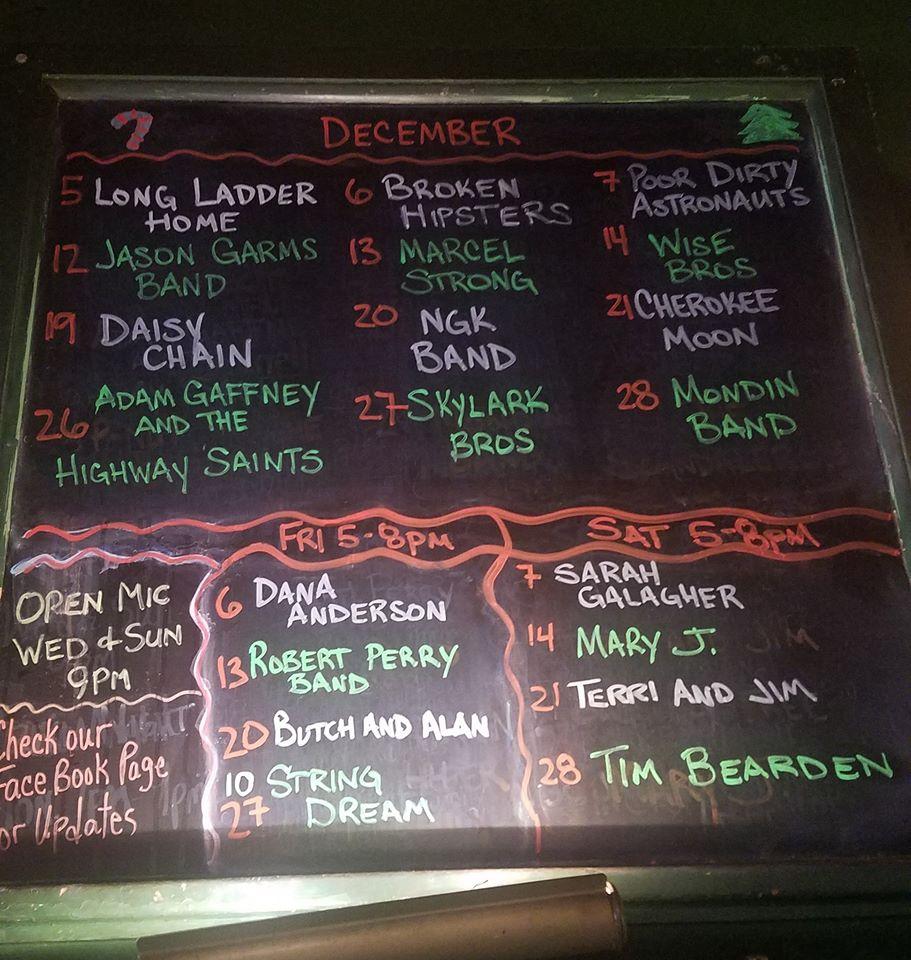 DECEMBER
5 LONG LADDER
HOME
6 BROKEN
HIPSTERS
7 POOR DIRTY
ASTRONAUTS
12 JASON GARMS
BAND
13 MARCEL
STRONG
14 WISE
BROS
19 DAISY
CHAIN
20 NGK
BAND
21 CHEROKEE
MOON
26 ADAM GAFFNEY
AND THE
HIGHWAY SAINTS
27 SKYLARK
BROS
28 MONDIN
BAND
OPEN MIC
WED & SUN
9PM
Check our
Face Book Page
for Updates
FRI 5-8PM
6 DANA
ANDERSON
13 ROBERT PERRY
BAND
20 BUTCH AND ALAN
10 STRING
27 DREAM
SAT 5-8PM
7 SARAH
GALAGHER
14 MARY J.
21 TERRI AND JIM
28 TIM BEARDEN